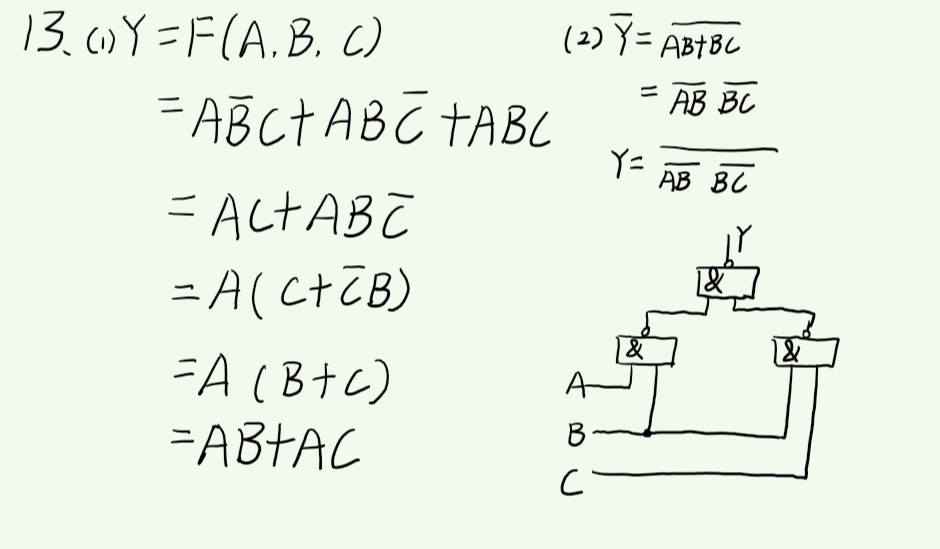 13、(1)Y=F(A,B,C)
=AB̅C+ABC̅+ABC
=AC+ABC̅
=A(C+C̅B)
=A(B+C)
=AB+AC
(2)Y̅=\overline{AB+BC}
=\overline{AB} \overline{BC}
Y=\overline{\overline{AB} \overline{BC}}
Y
&
& &
A
B
C